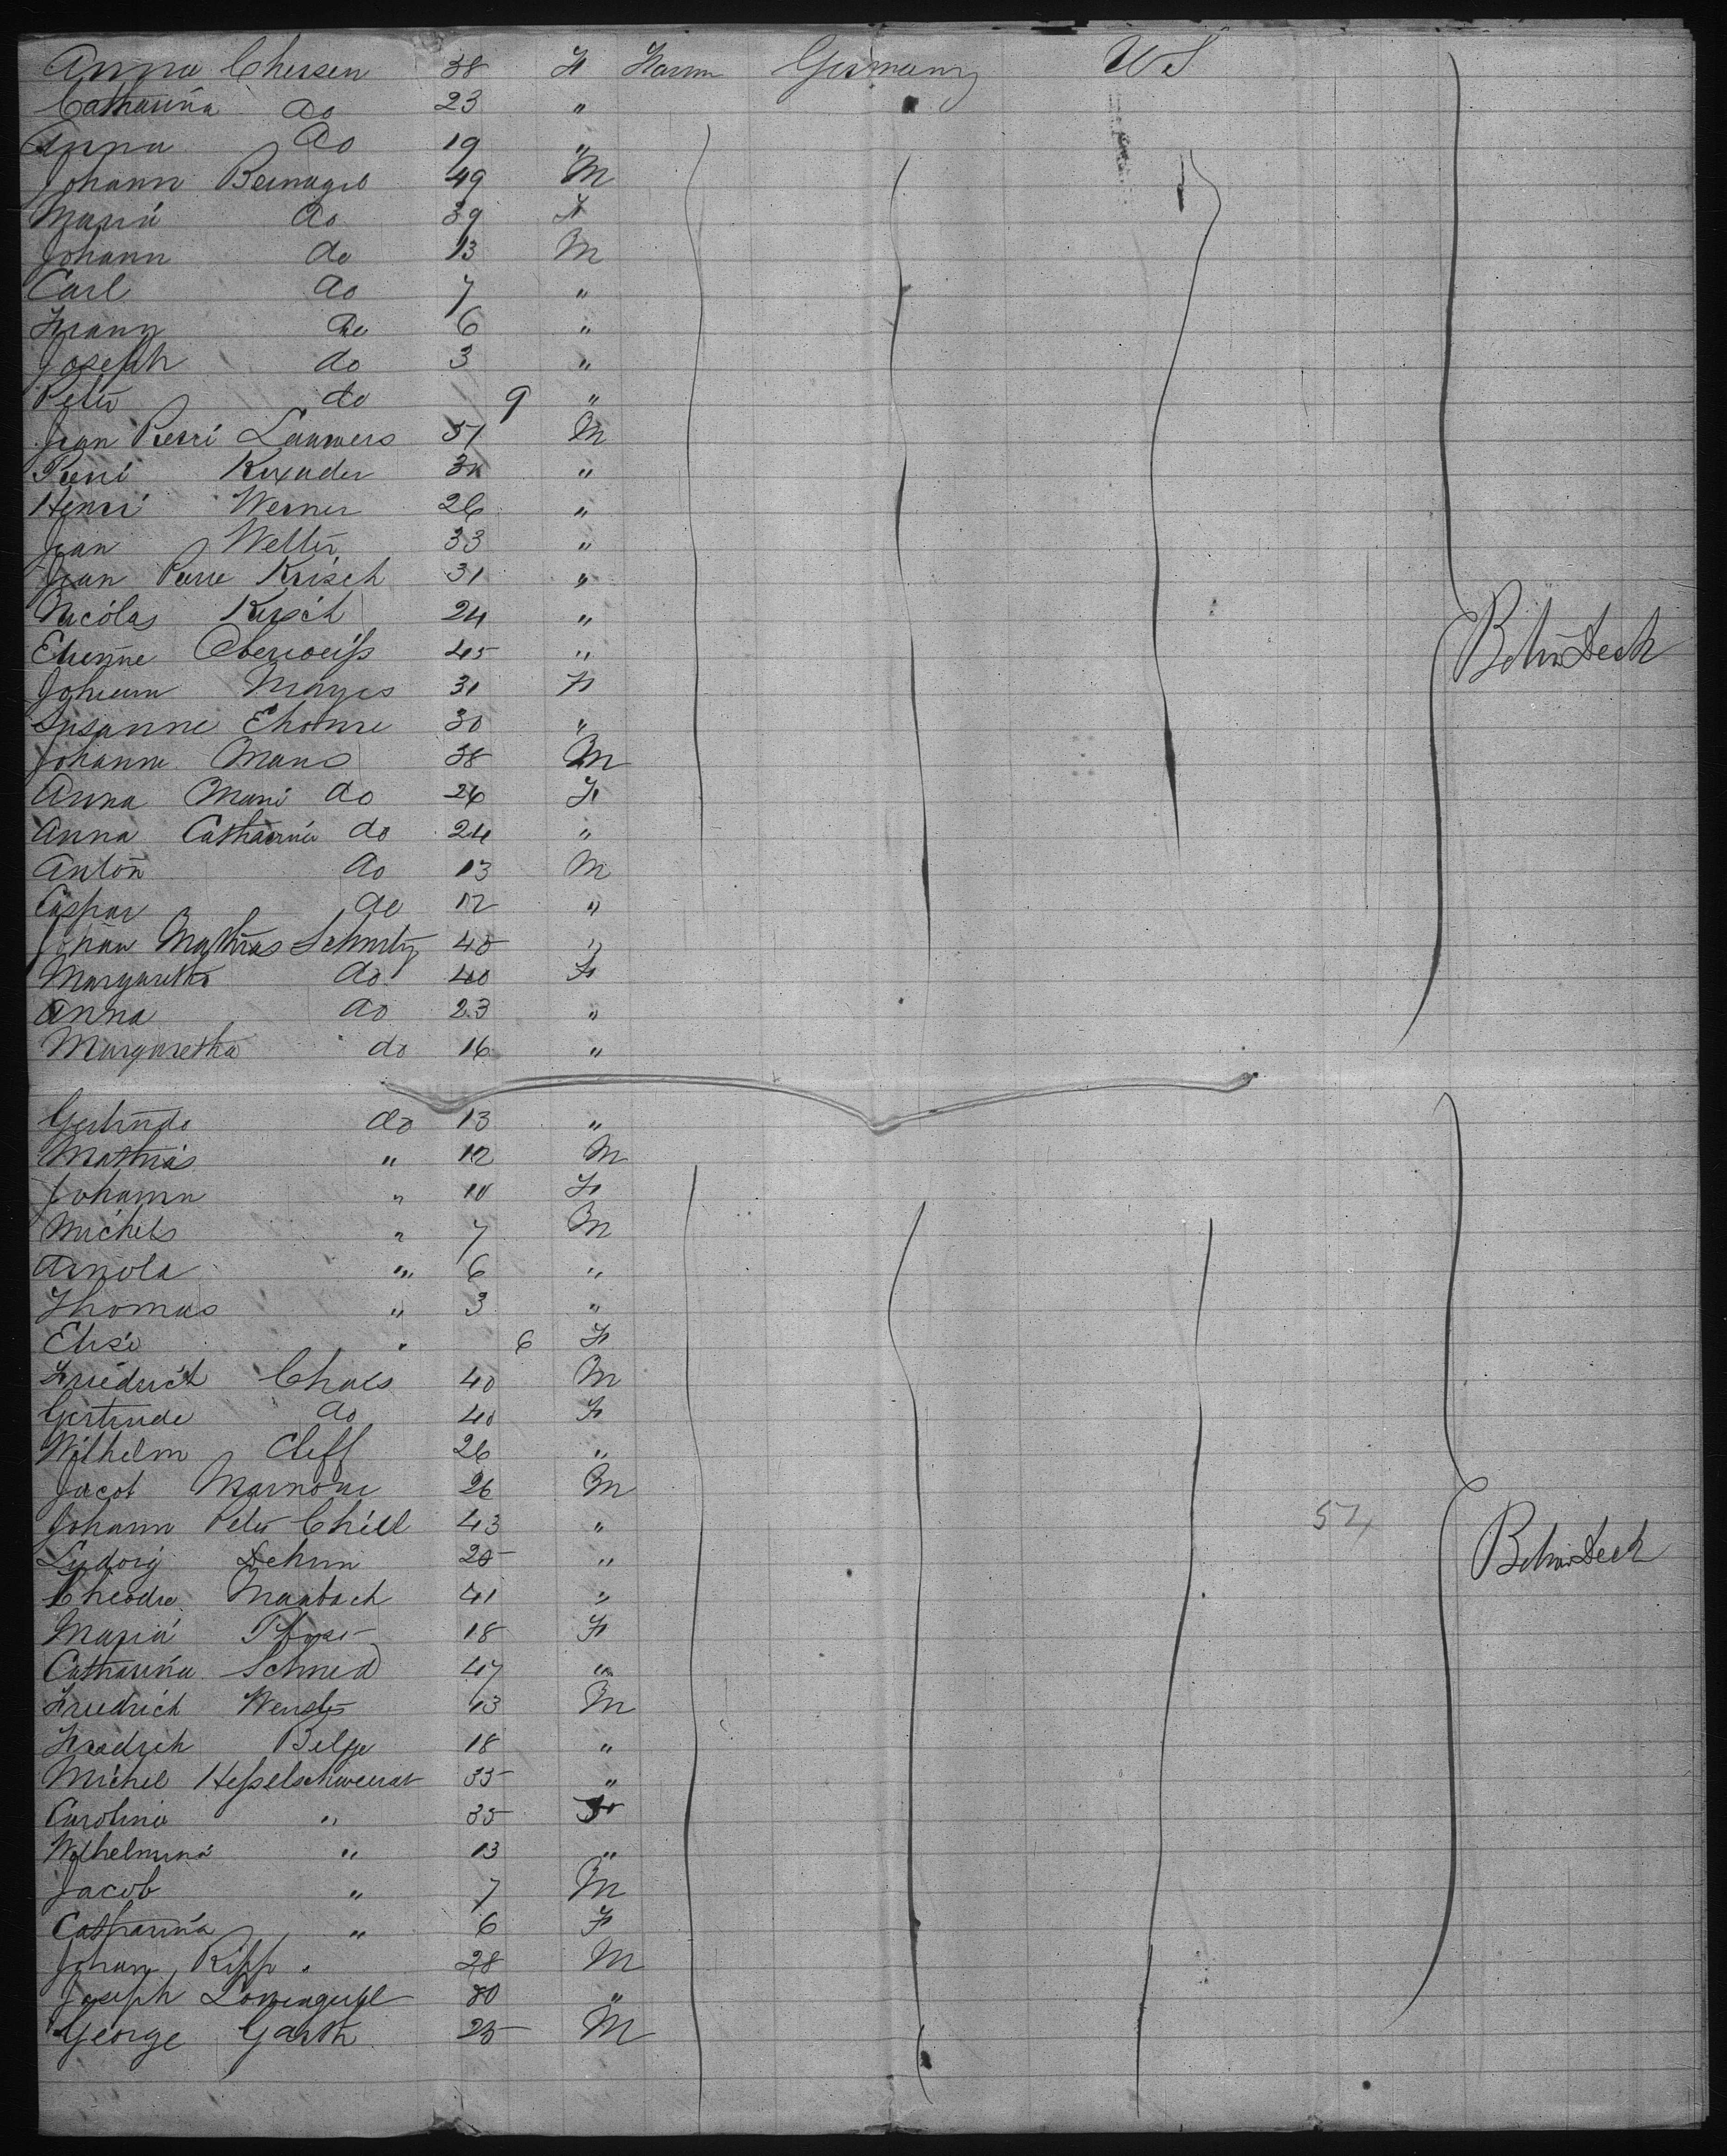 Anna Chersen 38 F Farm Germany US
Catharina do 23 "
Anna do 19 "
Johann 49 M
Maria do 39 F
Johann do 13 M
Carl do 7 "
Franz do 6 "
Joseph do 3 "
Peter do 9 "
Jean Pierri Lauwers 51 M
Pierri "
Henri Werner 26 "
Jean Welter 33 "
Jean Pierre Krisch 31 "
Nicolas Kirsch 24 "
Etienne Oberweiss 45 "
Johann Mayes 31 F
Susanne 30 "
Johann Mans 38 M
Anna Mari do 26 F
Anna Catharina do 24 "
Anton do 13 M
Caspar do 12 "
Johan Mathias 45 "
Margaretha do 40 F
Anna do 23 "
Margaretha do 16 "
Gertrude do 13 "
Mathias " 12 M
Johanna " 10 F
Michels " 7 M
Arnold " 6 "
Thomas " 3 "
Elise " 6 F
Friedrich 40 M
Gertrude do 40 F
Wilhelm Cleff 26 "
Jacob 26 M
Johann Peter Chill 43 "
Ludwig 25 "
Theodre Maubach 41 "
Maria 18 F
Catharina Schmid 47 "
Friedrich Wenster 13 M
Friedrich Belge 18 "
Michel 35 "
Carolina " 35 F
Wilhelmina " 13 "
Jacob " 7 M
Catharina " 6 F
Johan Ripp 28 M
Joseph "
George Garth 25 M
Betw Deck
54
Betw Deck